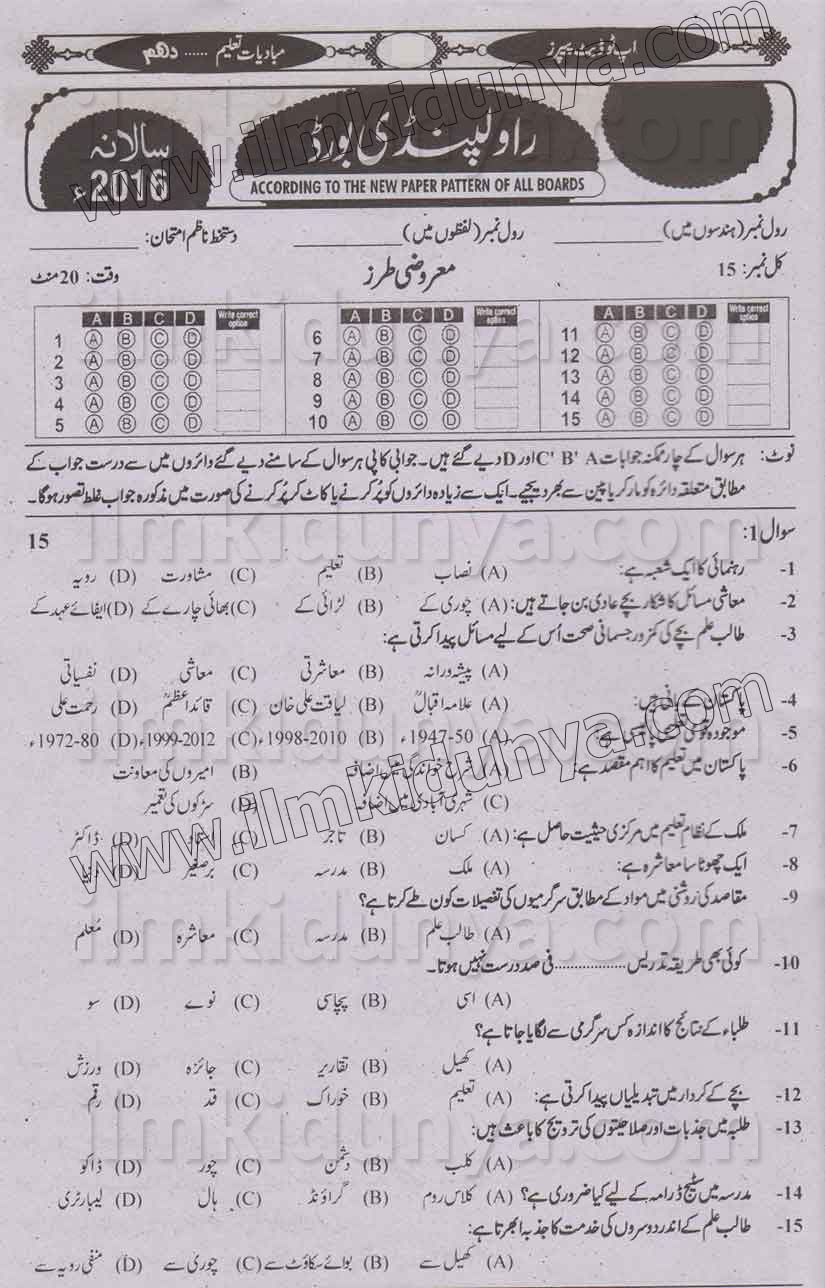 اپ ٹو ڈیٹ پیپرز
مبادیات تعلیم ...... دهم
راولپنڈی بورڈ
سالانہ
2016ء
ACCORDING TO THE NEW PAPER PATTERN OF ALL BOARDS
رول نمبر (ہندسوں میں) ____________ رول نمبر (لفظوں میں) ____________ دستخط ناظم امتحان: ____________
کل نمبر: 15 معروضی طرز وقت: 20 منٹ
A B C D Write correct option
1 A B C D
2 A B C D
3 A B C D
4 A B C D
5 A B C D
A B C D Write correct option
6 A B C D
7 A B C D
8 A B C D
9 A B C D
10 A B C D
A B C D Write correct option
11 A B C D
12 A B C D
13 A B C D
14 A B C D
15 A B C D
نوٹ: ہر سوال کے چار ممکنہ جوابات C' B' A اور D دیے گئے ہیں۔ جوابی کاپی پر ہر سوال کے سامنے دیے گئے دائروں میں سے درست جواب کے
مطابق متعلقہ دائرہ کو مارکر یا پین سے بھر دیجیے۔ ایک سے زیادہ دائروں کو پُر کرنے یا کاٹ کر پُر کرنے کی صورت میں مذکورہ جواب غلط تصور ہوگا۔
سوال 1: 15
1- رہنمائی کا ایک شعبہ ہے: (A) نصاب (B) تعلیم (C) مشاورت (D) رویہ
2- معاشی مسائل کا شکار بچے عادی بن جاتے ہیں: (A) چوری کے (B) لڑائی کے (C) بھائی چارے کے (D) ایفائے عہد کے
3- طالب علم بچے کی کمزور جسمانی صحت اُس کے لیے مسائل پیدا کرتی ہے:
(A) پیشہ ورانہ (B) معاشرتی (C) معاشی (D) نفسیاتی
4- پاکستان کے بانی ہیں: (A) علامہ اقبالؒ (B) لیاقت علی خان (C) قائداعظمؒ (D) رحمت علی
5- موجودہ قومی تعلیمی پالیسی ہے: (A) 1947-50ء (B) 1998-2010ء (C) 1999-2012ء (D) 1972-80ء
6- پاکستان میں تعلیم کا اہم مقصد ہے: (A) شرح خواندگی میں اضافہ (B) امیروں کی معاونت
(C) شہری آبادی میں اضافہ (D) سڑکوں کی تعمیر
7- ملک کے نظامِ تعلیم میں مرکزی حیثیت حاصل ہے: (A) کسان (B) تاجر (C) (D) ڈاکٹر
8- ایک چھوٹا سا معاشرہ ہے: (A) ملک (B) مدرسہ (C) برصغیر (D)
9- مقاصد کی روشنی میں مواد کے مطابق سرگرمیوں کی تفصیلات کون طے کرتا ہے؟
(A) طالب علم (B) مدرسہ (C) معاشرہ (D) مُعلم
10- کوئی بھی طریقہ تدریس .................... فی صد درست نہیں ہوتا۔
(A) اسی (B) پچاسی (C) نوے (D) سو
11- طلباء کے نتائج کا اندازہ کس سرگرمی سے لگایا جاتا ہے؟
(A) کھیل (B) تقاریر (C) جائزہ (D) ورزش
12- بچے کے کردار میں تبدیلیاں پیدا کرتی ہے: (A) تعلیم (B) خوراک (C) قد (D) رقم
13- طلبہ میں جذبات اور صلاحیتوں کی ترویج کا باعث ہیں:
(A) کلب (B) دشمن (C) چور (D) ڈاکو
14- مدرسہ میں سٹیج ڈرامہ کے لیے کیا ضروری ہے؟ (A) کلاس روم (B) گراؤنڈ (C) ہال (D) لیبارٹری
15- طالب علم کے اندر دوسروں کی خدمت کا جذبہ ابھرتا ہے:
(A) کھیل سے (B) بوائے سکاؤٹ سے (C) چوری سے (D) منفی رویہ سے
www.ilmkidunya.com
www.ilmkidunya.com
ilmkidunya.com
ilmkidunya.com
ilmkidunya.com
ilmkidunya.com
ilmkidunya.com
ilmkidunya.com